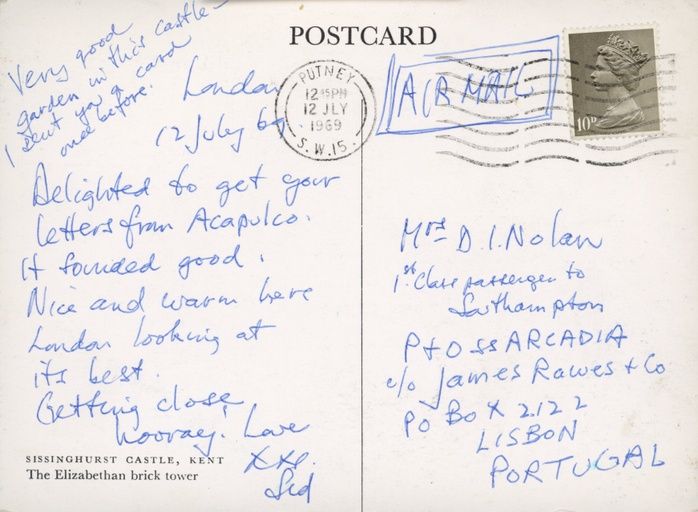 POSTCARD
Very good
garden in this castle -
I sent you a card
once before.
London
12 July 69
Delighted to get your
letters from Acapulco.
It sounded good.
Nice and warm here
London looking at
its best.
Getting close
hooray! Love
xxx.
Sid
SISSINGHURST CASTLE, KENT
The Elizabethan brick tower
PUTNEY
12 15PM
12 JLY
1969
S.W.15.
AIR MAIL
10D
Mrs D.I. Nolan
1st Class passenger to
Southampton
P+O SS ARCADIA
c/o James Rawes + Co
PO BOX 2122
LISBON
PORTUGAL